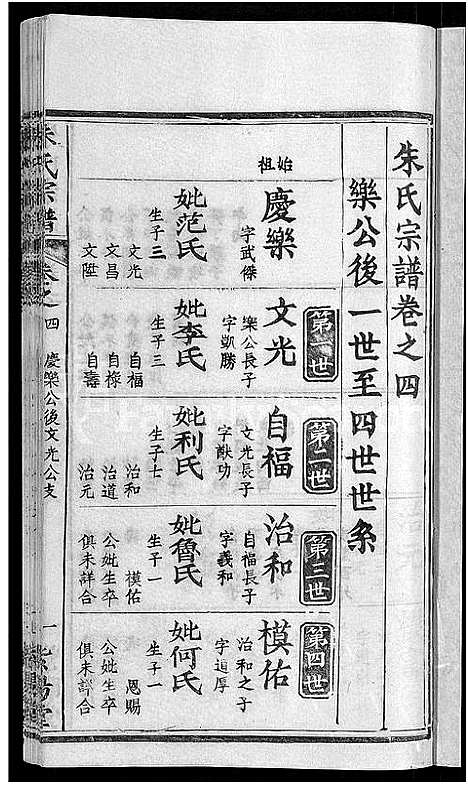 朱氏宗譜卷之四
樂公後一世至四世世系
始祖
慶樂
字武傑
妣范氏
生子三
文光
文昌
文陞
第一世
文光
樂公長子
字凱勝
妣李氏
生子三
自福
自祿
自壽
第二世
自福
文光長子
字猷功
妣利氏
生子七
治和
治道
治元
第三世
治和
自福長子
字義和
妣魯氏
生子一
模佑
公妣生卒
俱未詳合
第四世
模佑
治和之子
字迫厚
妣何氏
生子一
恩賜
公妣生卒
俱未詳合
朱氏宗譜
卷之四
慶樂公後文光公支
一
紫陽堂